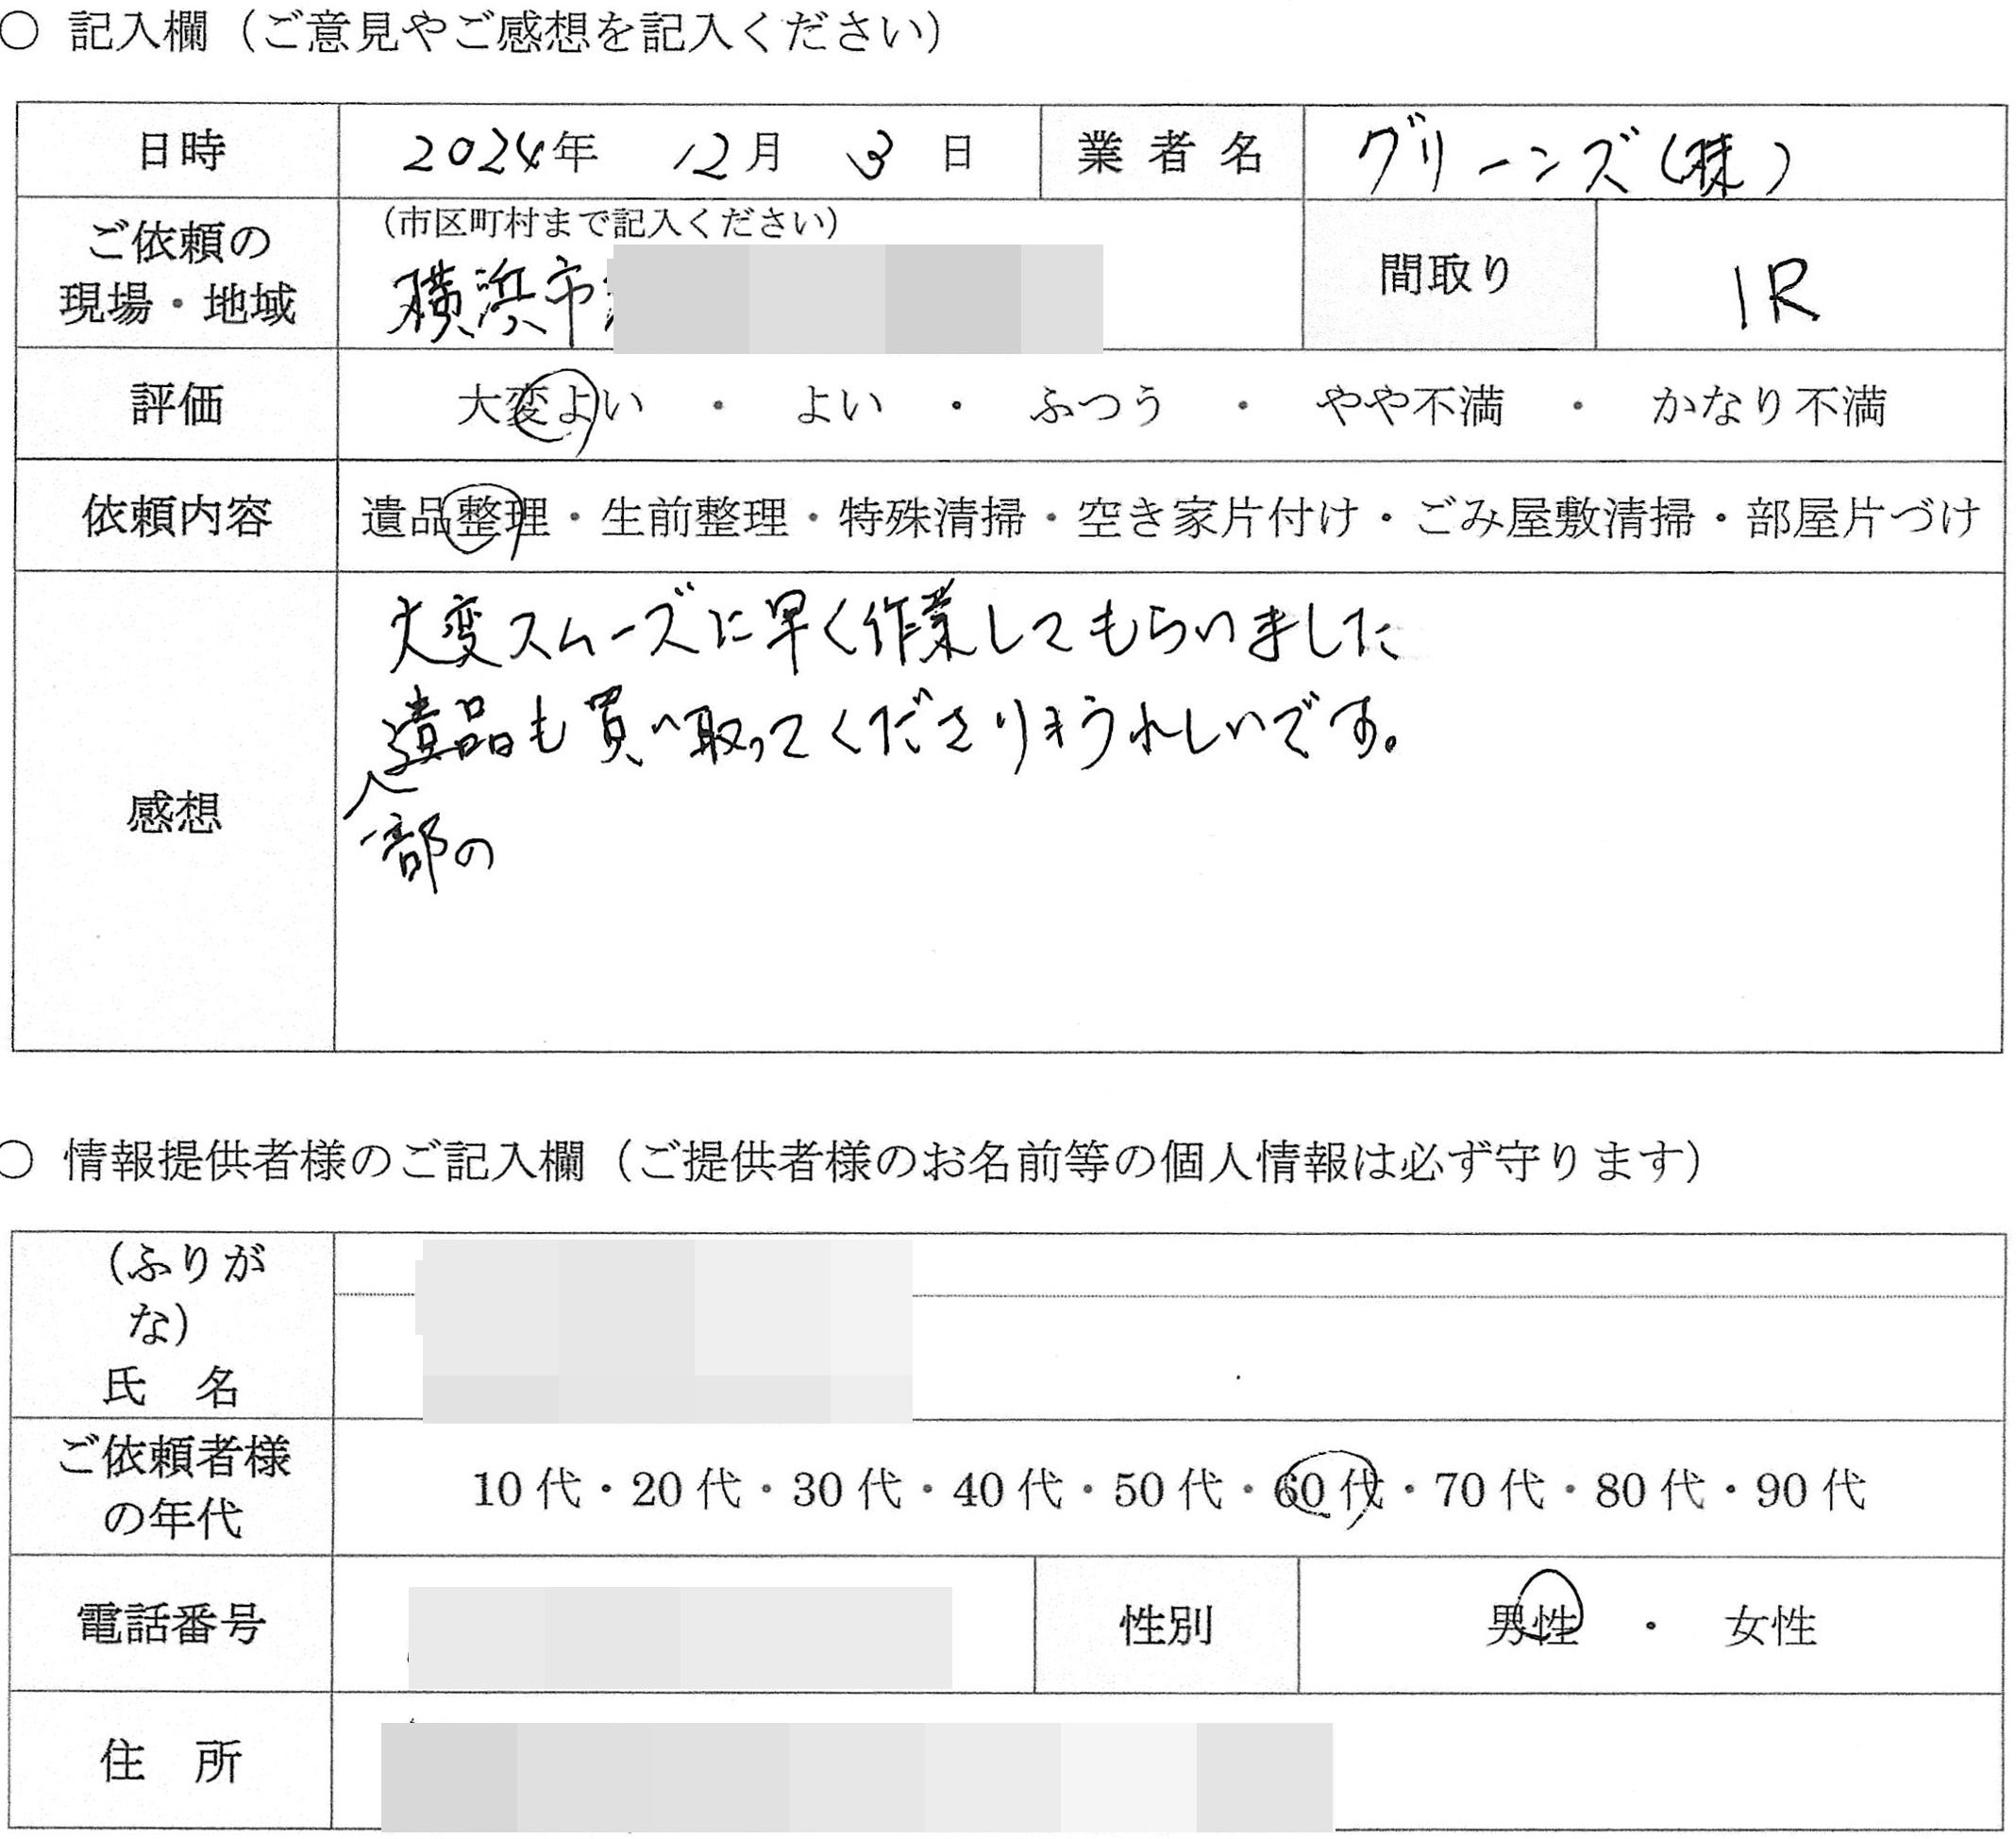 ○ 記入欄（ご意見やご感想を記入ください）
日時 2024年 12月 3日 業者名 グリーンズ(株)
ご依頼の現場・地域 （市区町村まで記入ください） 間取り 1R
横浜市
評価 大変よい ・ よい ・ ふつう ・ やや不満 ・ かなり不満
依頼内容 遺品整理・生前整理・特殊清掃・空き家片付け・ごみ屋敷清掃・部屋片づけ
感想
大変スムーズに早く作業してもらいました
遺品も買い取ってくださりうれしいです。
一部の
○ 情報提供者様のご記入欄（ご提供者様のお名前等の個人情報は必ず守ります）
（ふりが
な）
氏 名
ご依頼者様
の年代
10代・20代・30代・40代・50代・60代・70代・80代・90代
電話番号 性別 男性 ・ 女性
住 所